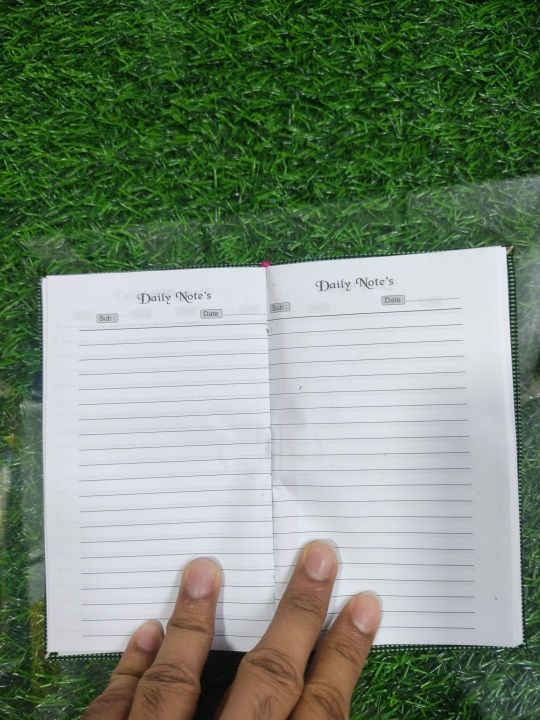 Daily Note's
Sub :
Date
Daily Note's
Sub :
Date